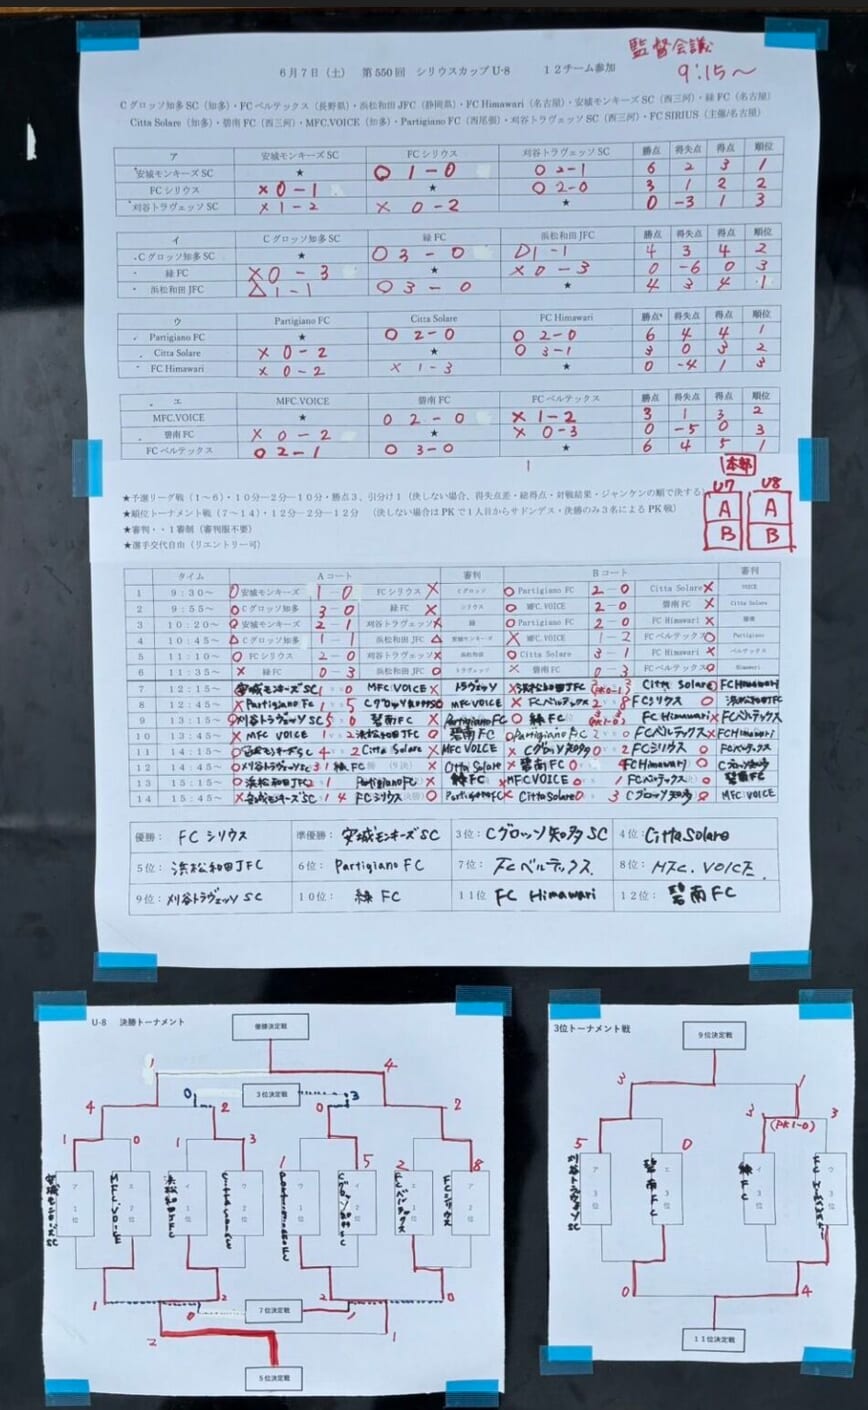 監督会議
9:15〜
6月7日（土）　第550回　シリウスカップU-8　12チーム参加
Cグロッソ知多SC（知多）・FCベルテックス（長野県）・浜松和田JFC（静岡県）・FC Himawari（名古屋）・安城モンキーズSC（西三河）・緑FC（名古屋）
Citta Solare（知多）・碧南FC（西三河）・MFC.VOICE（知多）・Partigiano FC（西尾張）・刈谷トラヴェッソSC（西三河）・FC SIRIUS（主催/名古屋）
ア 安城モンキーズSC FCシリウス 刈谷トラヴェッソSC 勝点 得失点 得点 順位
安城モンキーズSC ★ ○ 1-0 ○ 2-1 6 2 3 1
FCシリウス × 0-1 ★ ○ 2-0 3 1 2 2
刈谷トラヴェッソSC × 1-2 × 0-2 ★ 0 -3 1 3
イ Cグロッソ知多SC 緑FC 浜松和田JFC 勝点 得失点 得点 順位
Cグロッソ知多SC ★ ○ 3-0 △ 1-1 4 3 4 2
緑FC × 0-3 ★ × 0-3 0 -6 0 3
浜松和田JFC △ 1-1 ○ 3-0 ★ 4 3 4 1
ウ Partigiano FC Citta Solare FC Himawari 勝点 得失点 得点 順位
Partigiano FC ★ ○ 2-0 ○ 2-0 6 4 4 1
Citta Solare × 0-2 ★ ○ 3-1 3 0 3 2
FC Himawari × 0-2 × 1-3 ★ 0 -4 1 3
エ MFC.VOICE 碧南FC FCベルテックス 勝点 得失点 得点 順位
MFC.VOICE ★ ○ 2-0 × 1-2 3 1 3 2
碧南FC × 0-2 ★ × 0-3 0 -5 0 3
FCベルテックス ○ 2-1 ○ 3-0 ★ 6 4 5 1
本部
U7 U8
A A
B B
★予選リーグ戦（1〜6）・10分―2分―10分・勝点3、引分け1（決しない場合、得失点差・総得点・対戦結果・ジャンケンの順で決する）
★順位トーナメント戦（7〜14）・12分―2分―12分　（決しない場合はPKで1人目からサドンデス・決勝のみ3名によるPK戦）
★審判・・1審制（審判服不要）
★選手交代自由（リエントリー可）
タイム Aコート 審判 Bコート 審判
1 9:30〜 ○ 安城モンキーズ 1-0 FCシリウス × Cグロッソ ○ Partigiano FC 2-0 Citta Solare × VOICE
2 9:55〜 ○ Cグロッソ知多 3-0 緑FC × シリウス ○ MFC.VOICE 2-0 碧南FC × Citta Solare
3 10:20〜 ○ 安城モンキーズ 2-1 刈谷トラヴェッソ × 緑 ○ Partigiano FC 2-0 FC Himawari × 碧南
4 10:45〜 △ Cグロッソ知多 1-1 浜松和田JFC △ 安城モンキーズ × MFC.VOICE 1-2 FCベルテックス ○ Partigiano
5 11:10〜 ○ FCシリウス 2-0 刈谷トラヴェッソ × 浜松和田 ○ Citta Solare 3-1 FC Himawari × ベルテックス
6 11:35〜 × 緑FC 0-3 浜松和田JFC ○ トラヴェッソ × 碧南FC 0-3 FCベルテックス ○ Himawari
7 12:15〜 安城モンキーズSC 1 0 MFC VOICE × トラヴェッソ × 浜松和田JFC 3 (PK0-1) 3 Citta Solare ○ FC Himawari
8 12:45〜 × Partigiano Fc 1 5 Cグロッソ知多SC MFC VOICE × FCベルテックス 2 8 FCシリウス ○ 浜松和田JFC
9 13:15〜 ○ 刈谷トラヴェッソSC 5 0 碧南FC × Partigiano FC ○ 緑FC 3 (PK1-0) 3 FC Himawari × FCベルテックス
10 13:45〜 × MFC VOICE 1 2 浜松和田JFC ○ 碧南FC ○ Partigiano FC 2 0 FCベルテックス × FC Himawari
11 14:15〜 ○ 安城モンキーズSC 4 2 Citta Solare × MFC VOICE × Cグロッソ知多 0 2 FCシリウス ○ FCベルテックス
12 14:45〜 ○ 刈谷トラヴェッソSC 3 1 緑FC (9決) × Citta Solare × 碧南FC 0 4 FC Himawari ○ Cグロッソ知多
13 15:15〜 ○ 浜松和田JFC 2 1 Partigiano FC × 緑FC × MFC VOICE 0 1 FCベルテックス ○ 碧南FC
14 15:45〜 × 安城モンキーズSC 1 4 FCシリウス ○ Partigiano FC × Citta Solare 0 3 Cグロッソ知多 ○ MFC VOICE
優勝： FCシリウス 準優勝： 安城モンキーズSC 3位： Cグロッソ知多SC 4位： Citta Solare
5位： 浜松和田JFC 6位： Partigiano FC 7位： FCベルテックス 8位： MFC.VOICE
9位： 刈谷トラヴェッソSC 10位： 緑FC 11位 FC Himawari 12位： 碧南FC
U-8　決勝トーナメント
優勝決定戦
1 4
0 3位決定戦 3
4 2 0 2
1 0 1 3 1 5 2 8
ア1位 エ2位 イ1位 ウ2位 ウ1位 イ2位 エ1位 ア2位
安城モンキーズSC MFC.VOICE 浜松和田JFC Citta Solare Partigiano FC Cグロッソ知多SC FCベルテックス FCシリウス
1 2 2 0
0 7位決定戦 1
2 1
5位決定戦
3位トーナメント戦
9位決定戦
3 1
5 0 3 (PK1-0) 3
ア3位 エ3位 イ3位 ウ3位
刈谷トラヴェッソSC 碧南FC 緑FC FC Himawari
0 4
11位決定戦